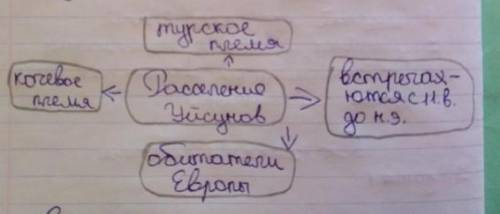 турское
племя
кочевое
племя
Расселение
Уйсунов
встречая-
ются с II.в.
до н.э.
обитатели
Европы